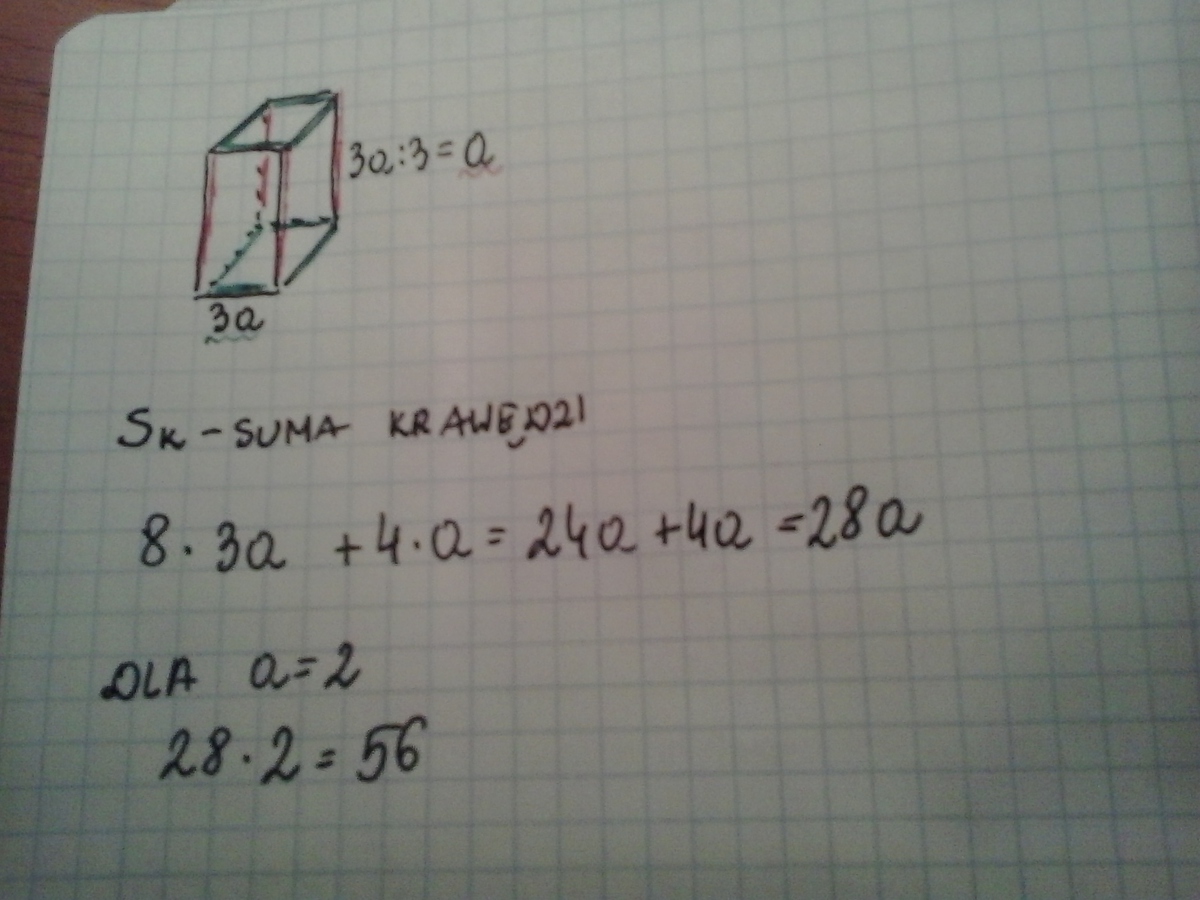 3a:3=a
3a
Sk - SUMA KRAWĘDZI
8 · 3a + 4 · a = 24a + 4a = 28a
DLA a=2
28 · 2 = 56